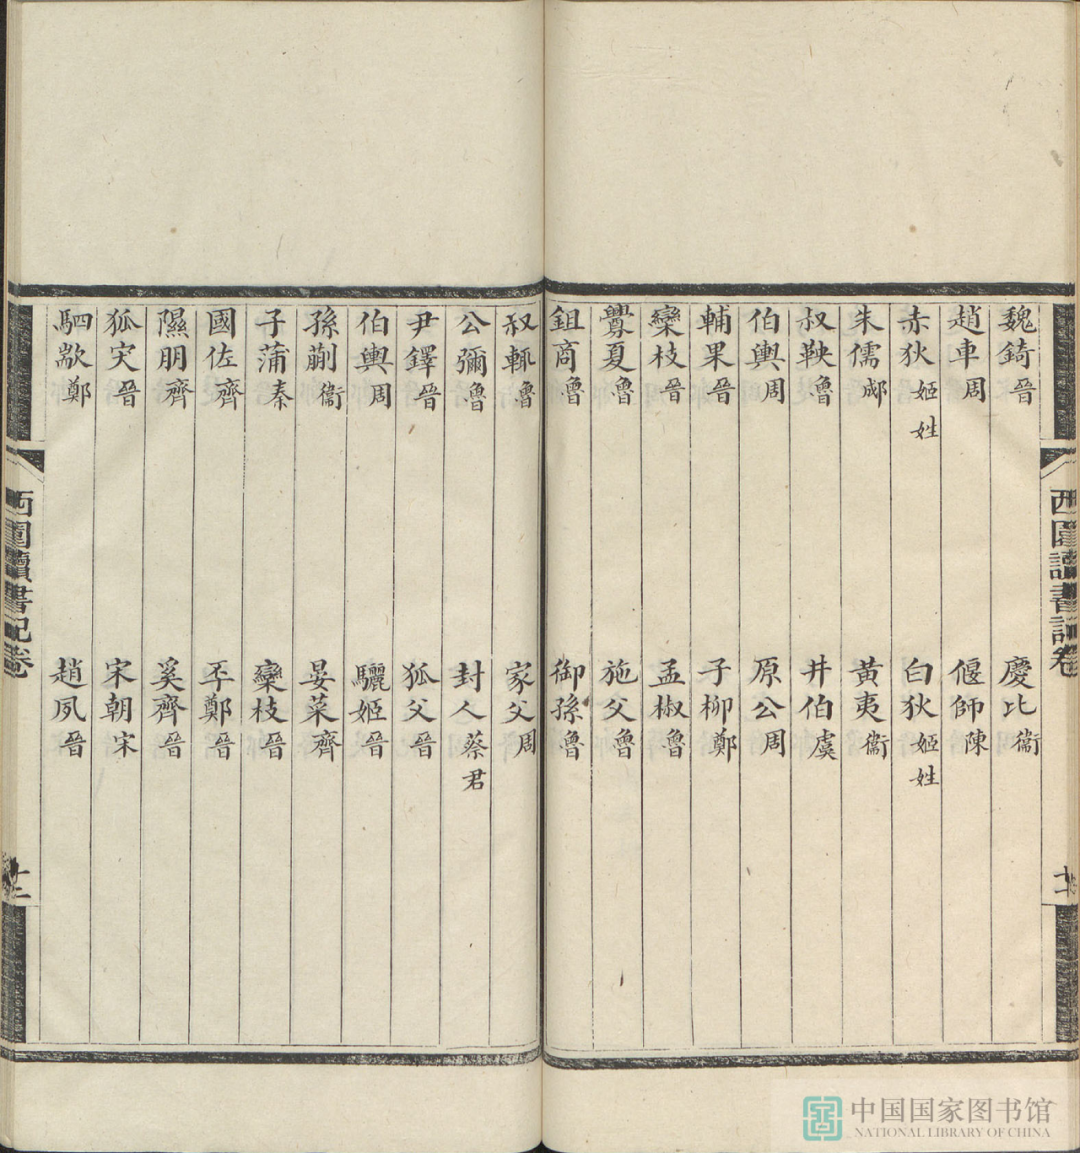 魏錡晉 慶比衞
趙車周 偃師陳
赤狄姬姓 白狄姬姓
朱儒郕 黃夷衞
叔鞅魯 井伯虞
伯輿周 原公周
輔果晉 子柳鄭
欒枝晉 孟椒魯
釁夏魯 施父魯
鉏商魯 御孫魯
叔輒魯 家父周
公彌魯 封人蔡君
尹鐸晉 狐父晉
伯輿周 驪姬晉
孫蒯衞 晏萊齊
子蒲秦 欒枝晉
國佐齊 㔻鄭晉
隰朋齊 奚齊晉
狐突晉 宋朝宋
駟歂鄭 趙夙晉
西圃讀書記卷
十二
中国国家图书馆
NATIONAL LIBRARY OF CHINA